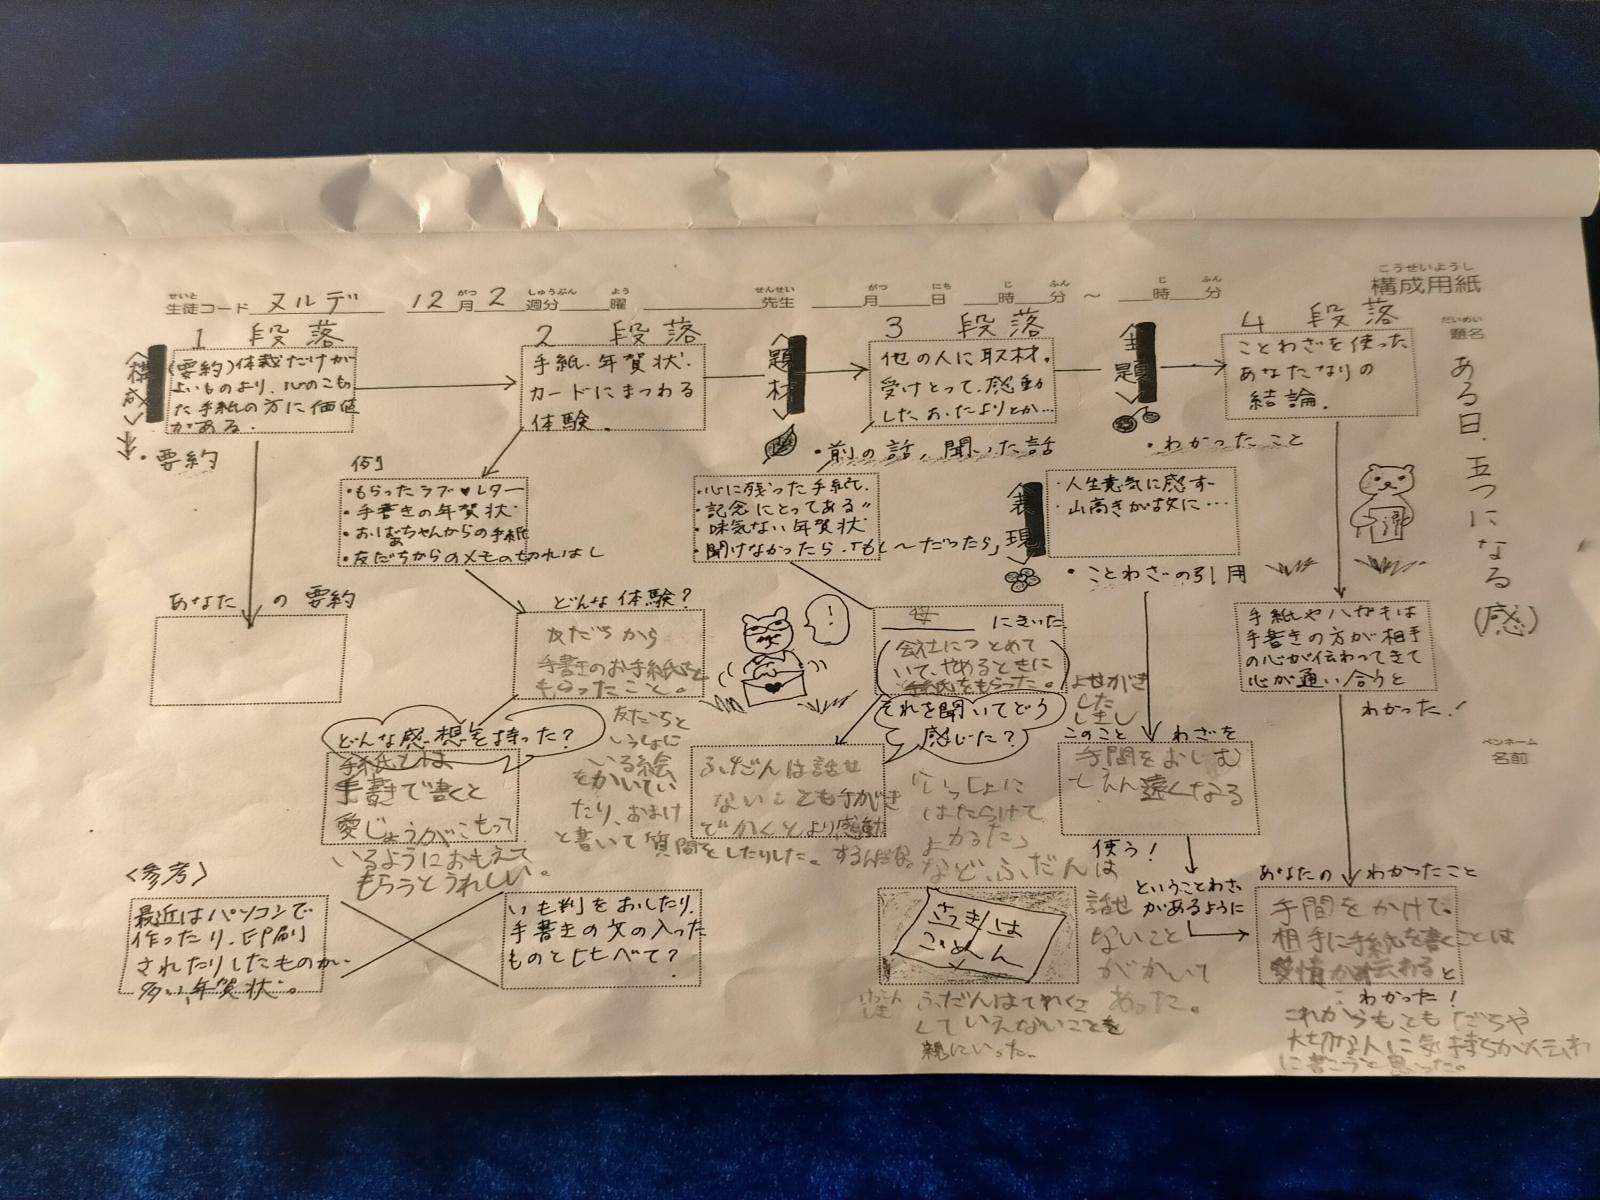 こうせいようし
構成用紙
せいと
生徒コード ヌルデ 12月2週分 曜 先生 月 日 時 分 ～ 時 分
がつ しゅうぶん よう せんせい がつ にち じ ふん じ ふん
だいめい
題名
ある日、五つになる
(感)
ペンネーム
名前
1 段落
(要約)体裁だけが
よいものより、心のこも
った手紙の方に価値
がある。
・要約
〈構成〉
2 段落
手紙、年賀状、
カードにまつわる
体験。
〈題材〉
3 段落
他の人に取材。
受けとって、感動
したおたよりとか…
〈主題〉
4 段落
ことわざを使った
あなたなりの
結論。
・前の話、聞いた話
・わかったこと
例
・もらったラブ♥レター
・手書きの年賀状
・おばあちゃんからの手紙
・友だちからのメモの切れはし
・心に残った手紙。
・記念にとってある〃
・味気ない年賀状
・聞けなかったら、「もし～だったら」
〈表現〉
・人生意気に感ず
・山高きが故に…
・ことわざの引用
あなたの要約
どんな体験?
友だちから
手書きのお手紙を
もらったこと。
友だちと
いっしょに
いる絵
をかいてい
たり、おまけ
と書いて質問をしたりした。
どんな感想を持った?
手紙とは
手書きで書くと
愛じょうがこもって
いるようにおもえて
もらうとうれしい。
!
母 にきいた
(会社につとめて
いて、やめるときに
手紙をもらった。)
よせがき
それを聞いてどう
感じた?
ふだんは話せ
ないことも手がき
でかくとより感動
するんだな。
「いっしょに
はたらけて
よかった」
などふだんは
話せ
ないこと
がかいて
あった。
このことわざを
手間をおしむ
遠くなる
使う!
ということわざ
があるように
手紙やハガキは
手書きの方が相手
の心が伝わってきて
心が通い合うと
わかった!
あなたのわかったこと
手間をかけて、
相手に手紙を書くことは
愛情が伝わると
わかった!
これからもともだちや
大切な人に気持ちが伝わ
に書こうと思った。
〈参考〉
最近はパソコンで
作ったり、印刷
されたりしたものが、
多い、年賀状。
いも判をおしたり、
手書きの文の入った
ものとくらべて?
さっきは
ごめん
ふだんはてれくさ
くていえないことを
親にいった。